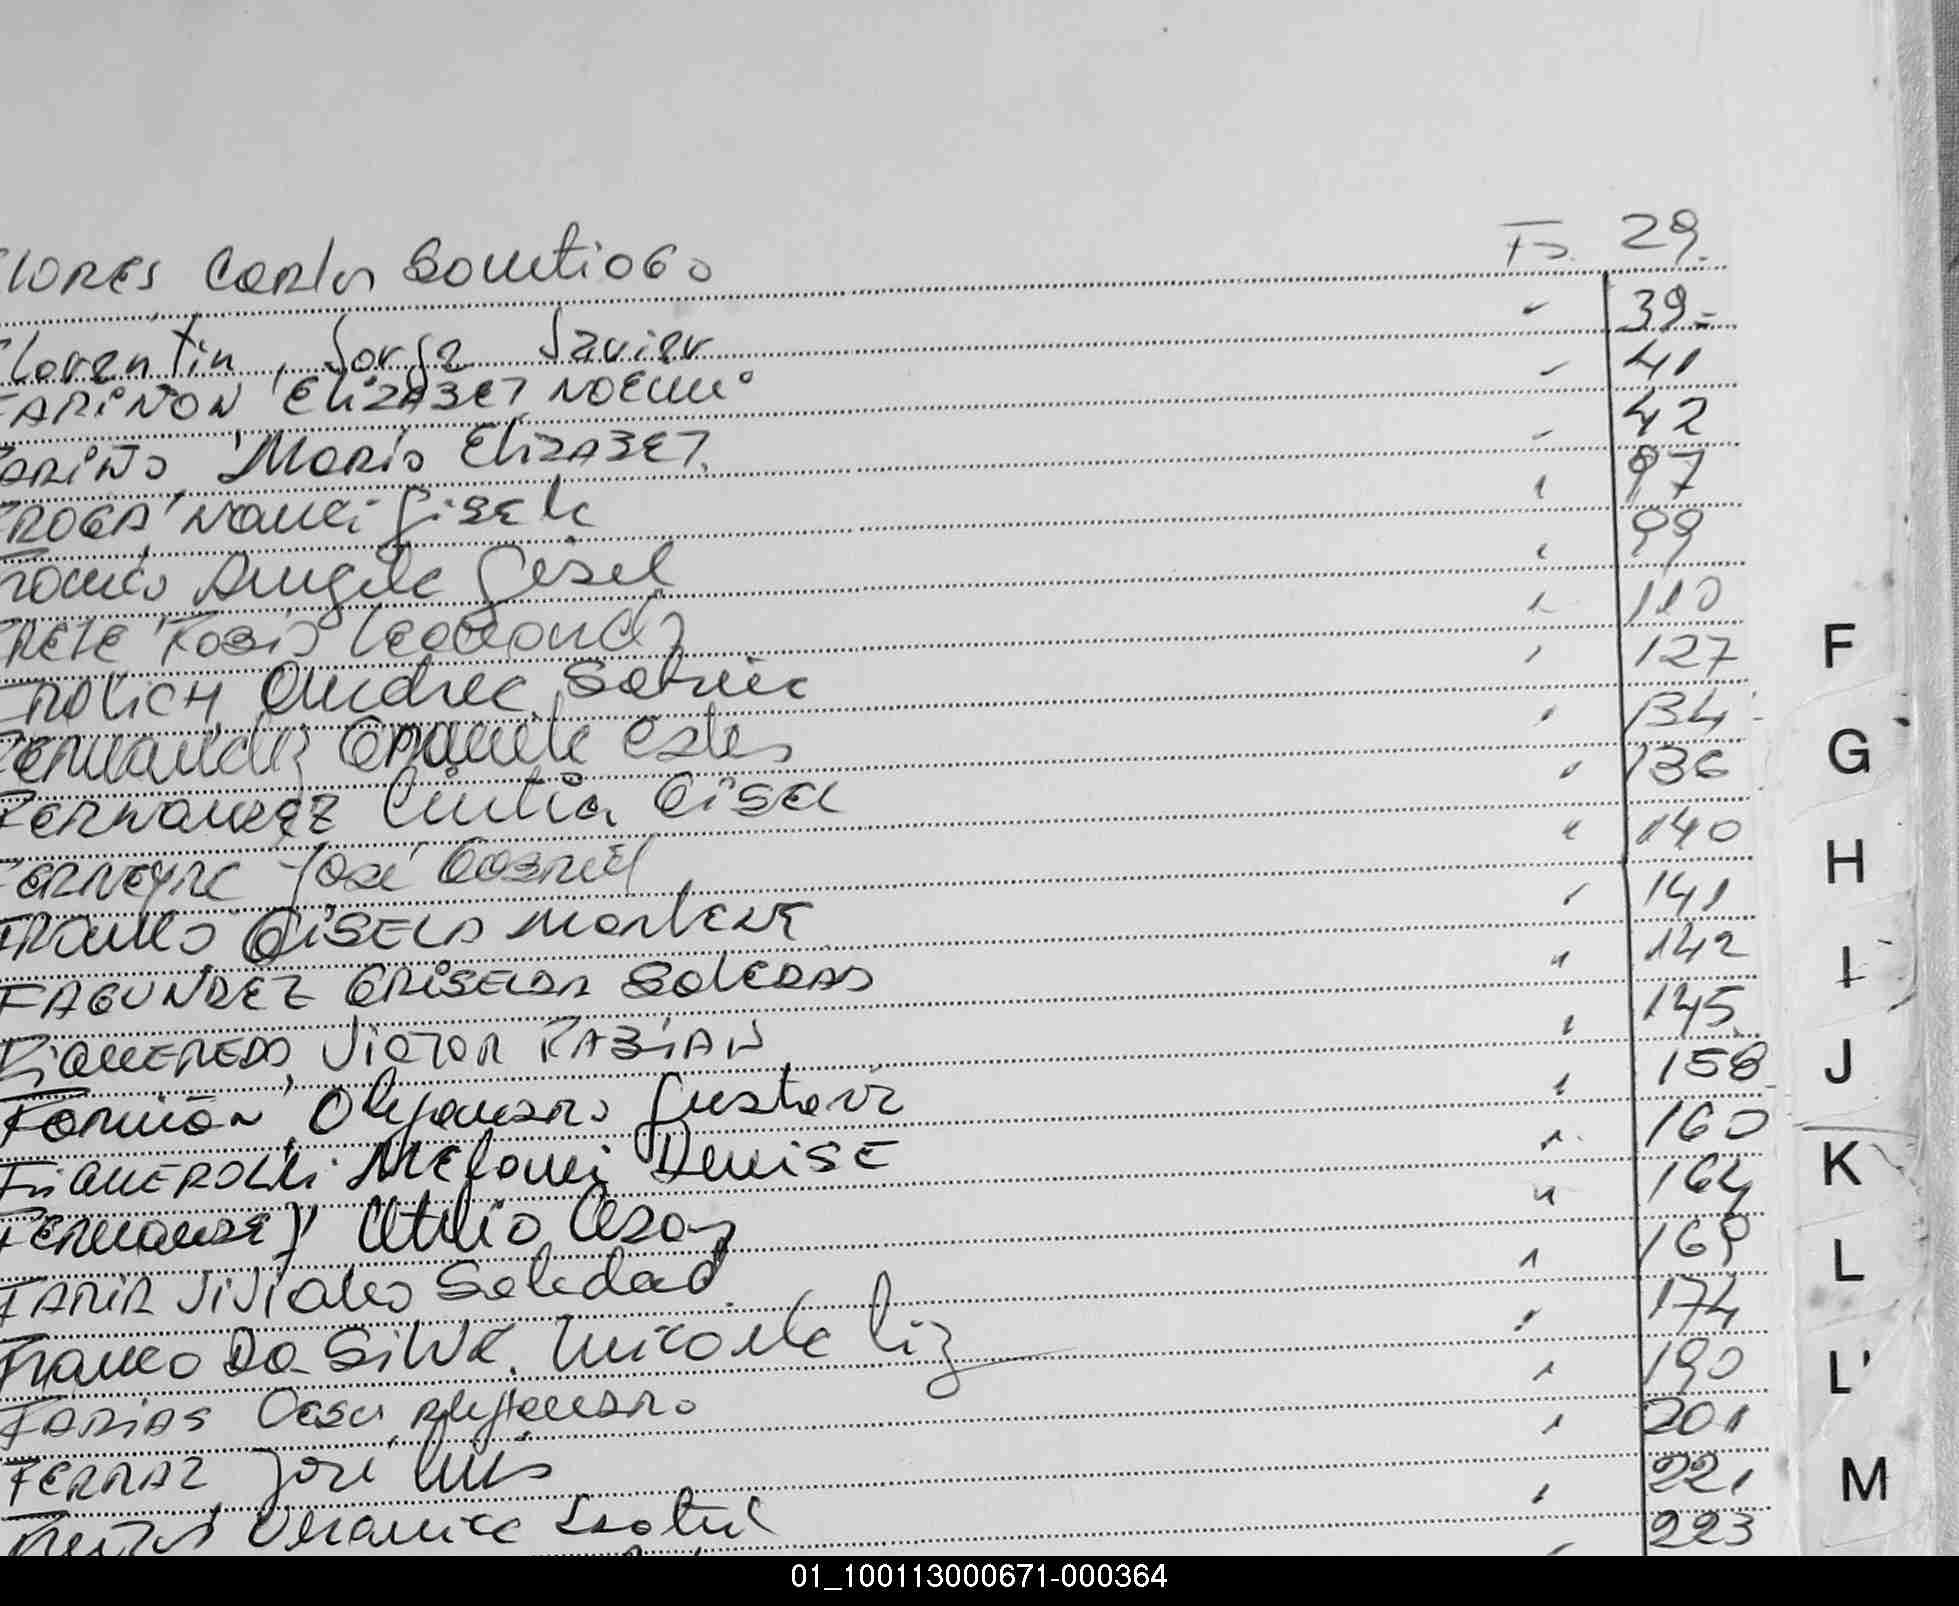 FLORES Carlos Santiago Fs. 29.
Florentin, Jorge Javier " 39-
FARIÑON Elizabet Noemi " 41
FARIÑO Maria Elizabet. " 42
FROGA Nanci Gisele " 97
Franco Angela Gisel " 99
FRETE Fabio Leonardo " 110
FROLICH Andrea Sabrina " 127
Fernandez Graciela Ester " 134
FERNANDEZ Cintia Gisel " 136
FERNEYRA José Gabriel " 140
FRANCO GISELA MARLENE " 141
FAGUNDEZ GRISELDA SOLEDAD " 142
FIGUEREDO, VICTOR FABIAN " 145
Formión, Alejandro Gustavo " 158
FIGUEROLLI Melani Denise " 160
Fernandez Atilio Cesar " 164
FARIA Viviana Soledad " 169
Franco Da Silva, Micaela Liz " 174
FARIAS Cesar Alejandro " 190
FERRAZ José Luis " 201
Veronica Beatriz " 221
223
F
G
H
I
J
K
L
L'
M
01_100113000671-000364